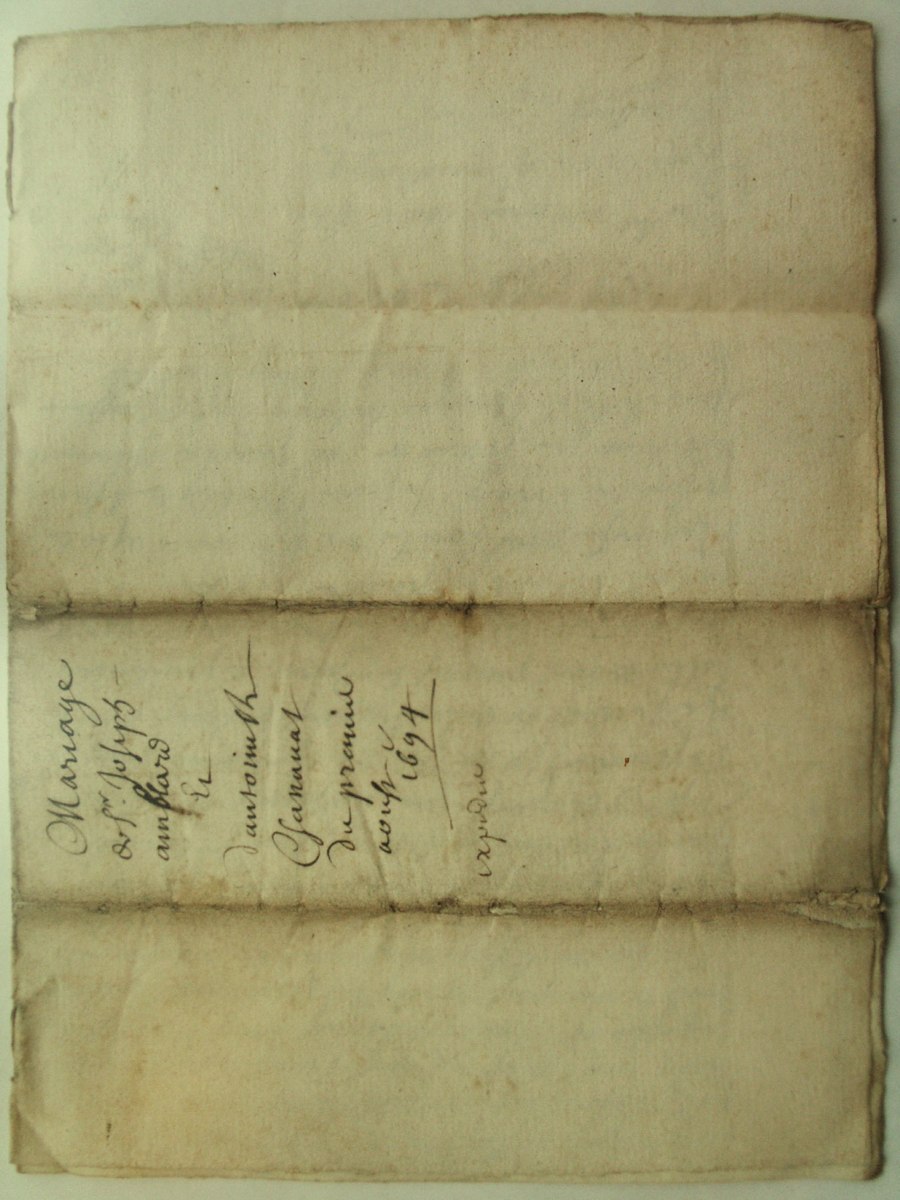 Mariage
de sr. Joseph
amblard
Et
dantoinette
Chanauat
du premier
aoust
1694
expedié